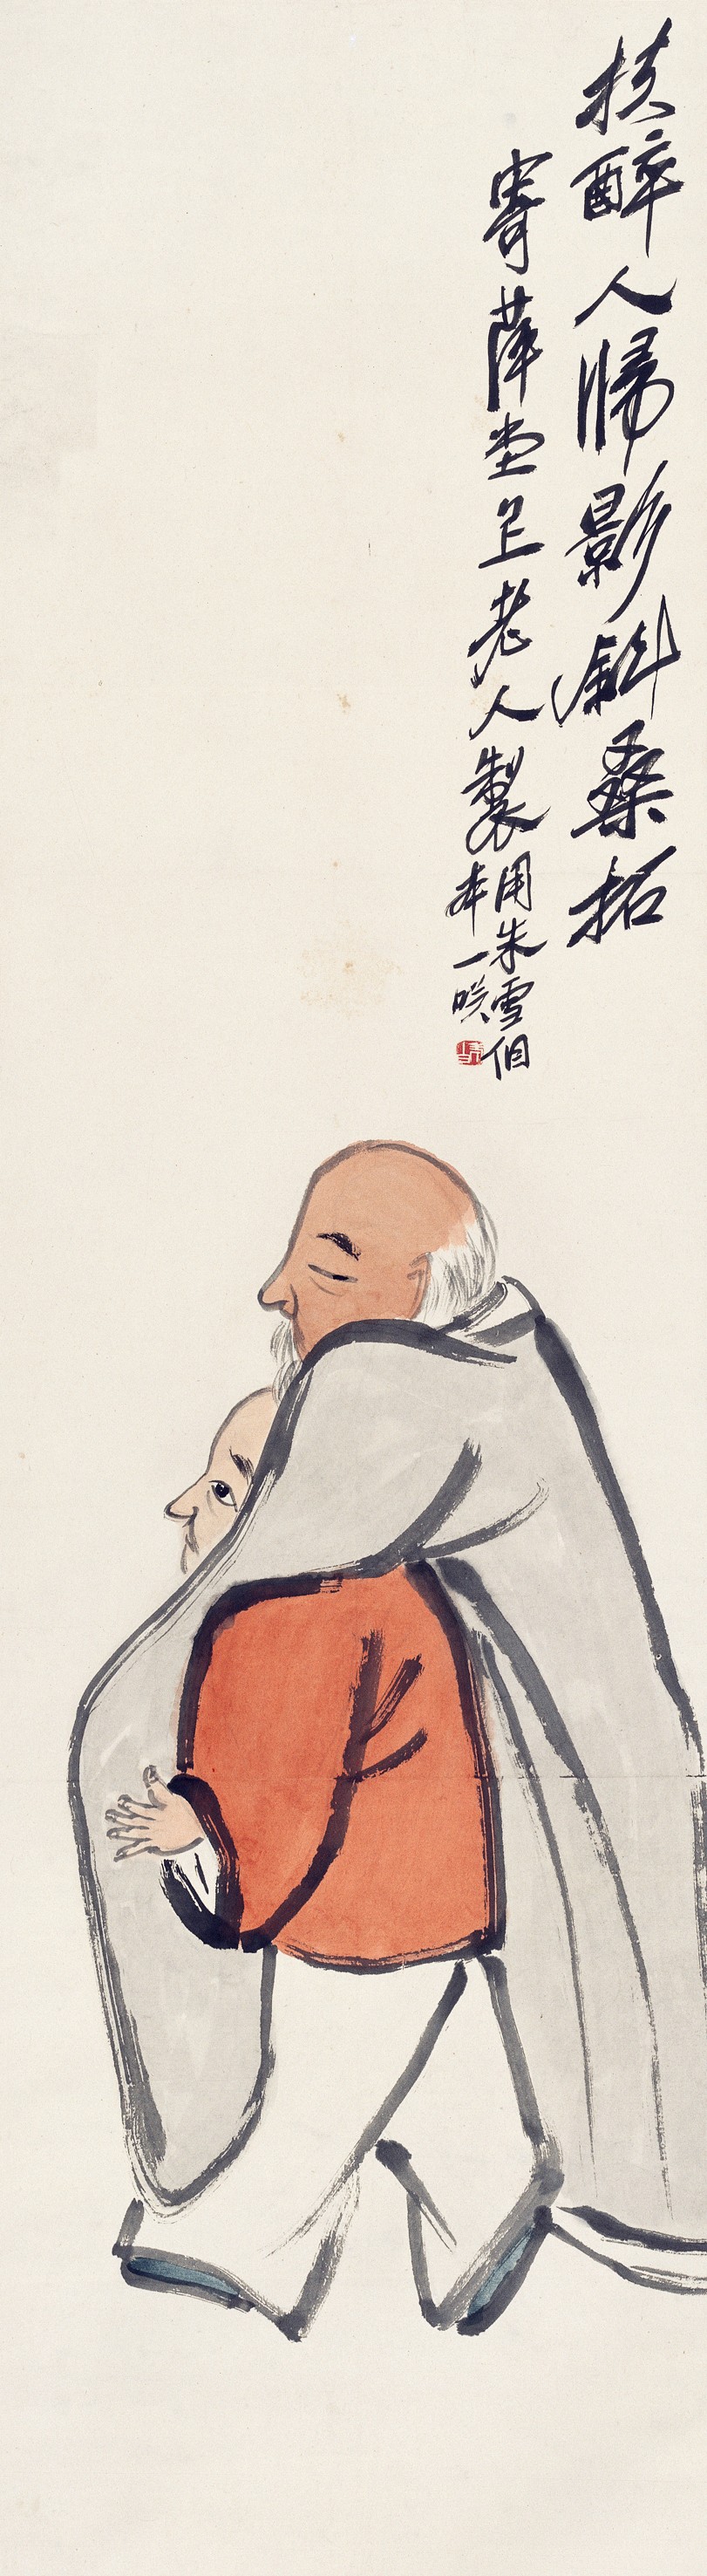 扶醉人歸影斜桑拓
寄萍堂上老人製
用朱雪個
本一笑